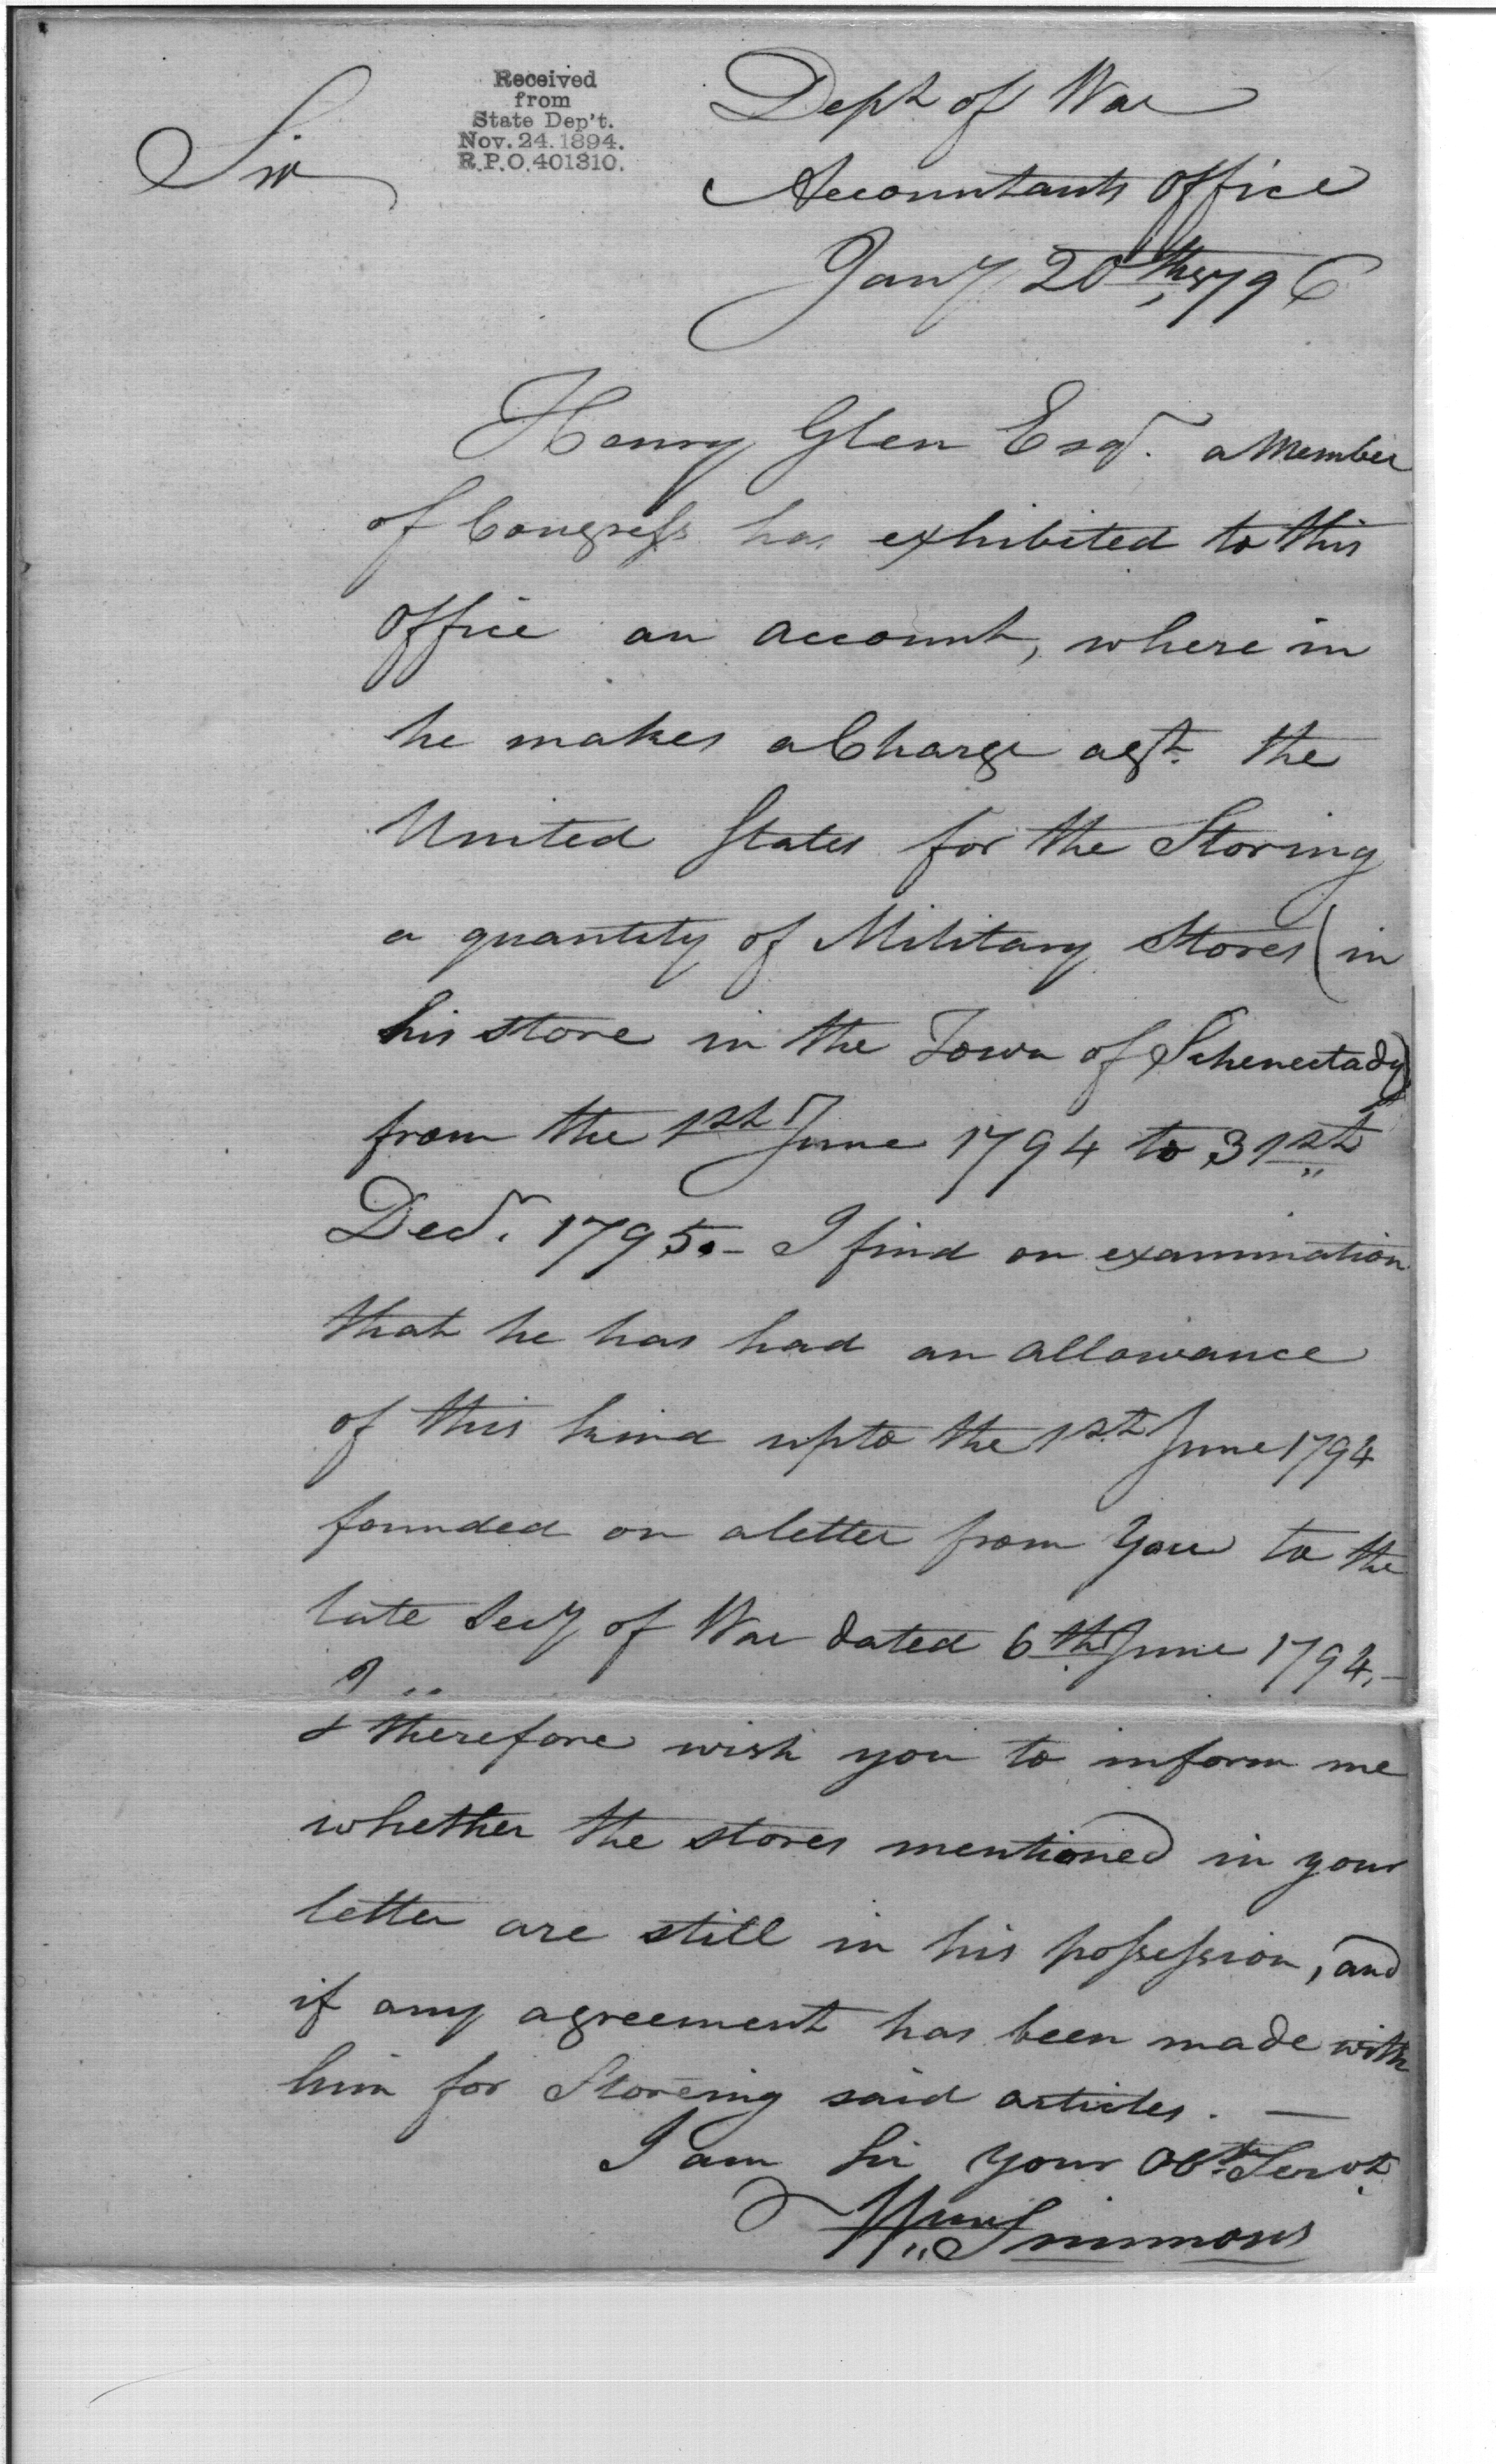 Received
from
State Dep't.
Nov. 24. 1894.
R.P.O. 401310.
Dept of War
Sir
Accountants Office
Jany 20th 1796
Henry Glen Esqr. a Member
of Congress has exhibited to this
Office an account, where in
he makes a Charge agst. the
United States for the Storing
a quantity of Military Stores (in
his store in the Town of Schenectady)
from the 1st June 1794 to 31st
Decr. 1795.- I find on examination
that he has had an allowance
of this kind upto the 1st June 1794
founded on a letter from You to the
late Secy of War dated 6th June 1794.-
I therefore wish you to inform me
whether the stores mentioned in your
letter are still in his possession, and
if any agreement has been made with
him for Storeing said articles. —
I am Sir Your Obt. Servt.
Wm Simmons